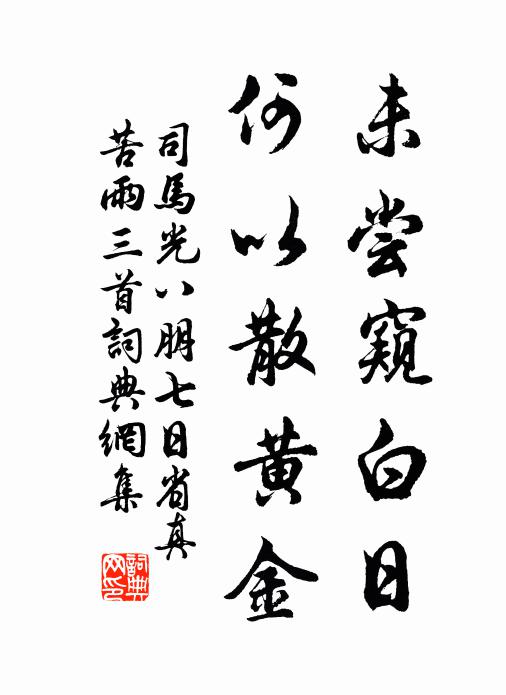 未尝窺白日
何以散黃金
司馬光八月七日省直
苦雨三首詞典網集
詞典網印